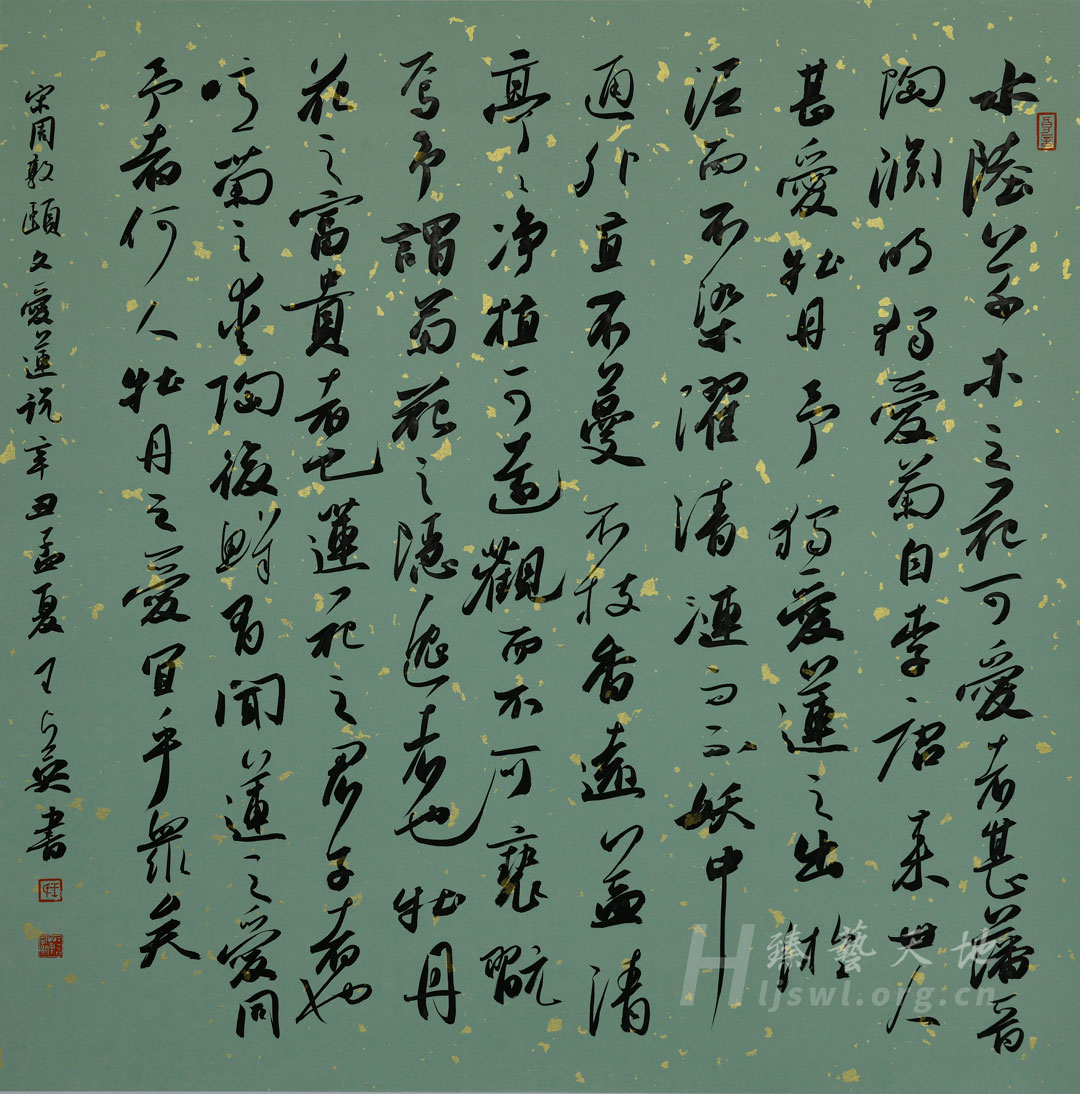 水陸草木之花可愛者甚蕃晉
陶淵明獨愛菊自李唐来世人
甚愛牡丹予獨愛蓮之出於
泥而不染濯清漣而不妖中
通外直不蔓不枝香遠益清
亭亭净植可遠觀而不可褻翫
焉予謂菊花之隱逸者也牡丹
花之富貴者也蓮花之君子者也
噫菊之愛陶後鮮有聞蓮之愛同
予者何人牡丹之愛宜乎眾矣
宋周敦頤文愛蓮说辛丑孟夏王英書
臻藝天地
Hljswl.org.cn